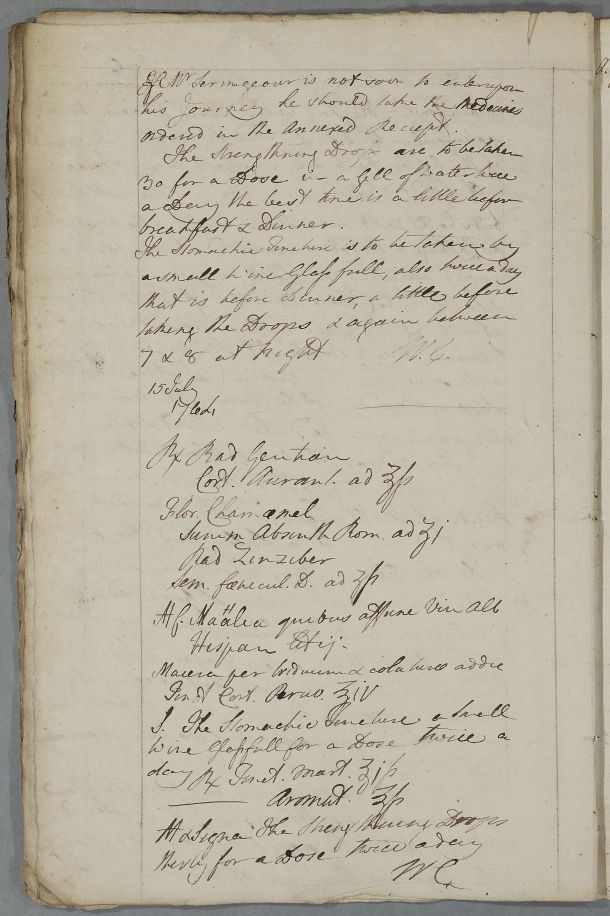 If Mr Scrimgeour is not soon to enter upon
his Journey he should take the Medecines
ordered in the Annexed Receipt.
The Strengthning Drops are to be taken
30 for a Dose in a Gill of water twice
a Day the best time is a little before
breakfast & Dinner.
The Stomachic Tincture is to be taken by
a small Wine Glass full, also twice a day
that is before Dinner, a little before
taking the Drops & again between
7 & 8 at Night W.C.
15 July
Rx Rad Gentian
Cort. Aurant. ad ʒſs
Flor. Chamæmel
Summ Absinth Rom. ad ʒj
Rad Zinziber
Sem. fœnicul. D. ad ʒſs
quibus affune Vin Alb
Hispan
Macera per triduum & colaturæ adde
Tinct Cort. Peruv. ℥iv
S. The Stomachic Tincture a small
Wine Glassfull for a Dose twice a
day Rx Tinct. Mart. ℥jſs
Aromat. ℥ſs
M & Signa The Strengthning Drops
thirty for a Dose twice a day
W C.